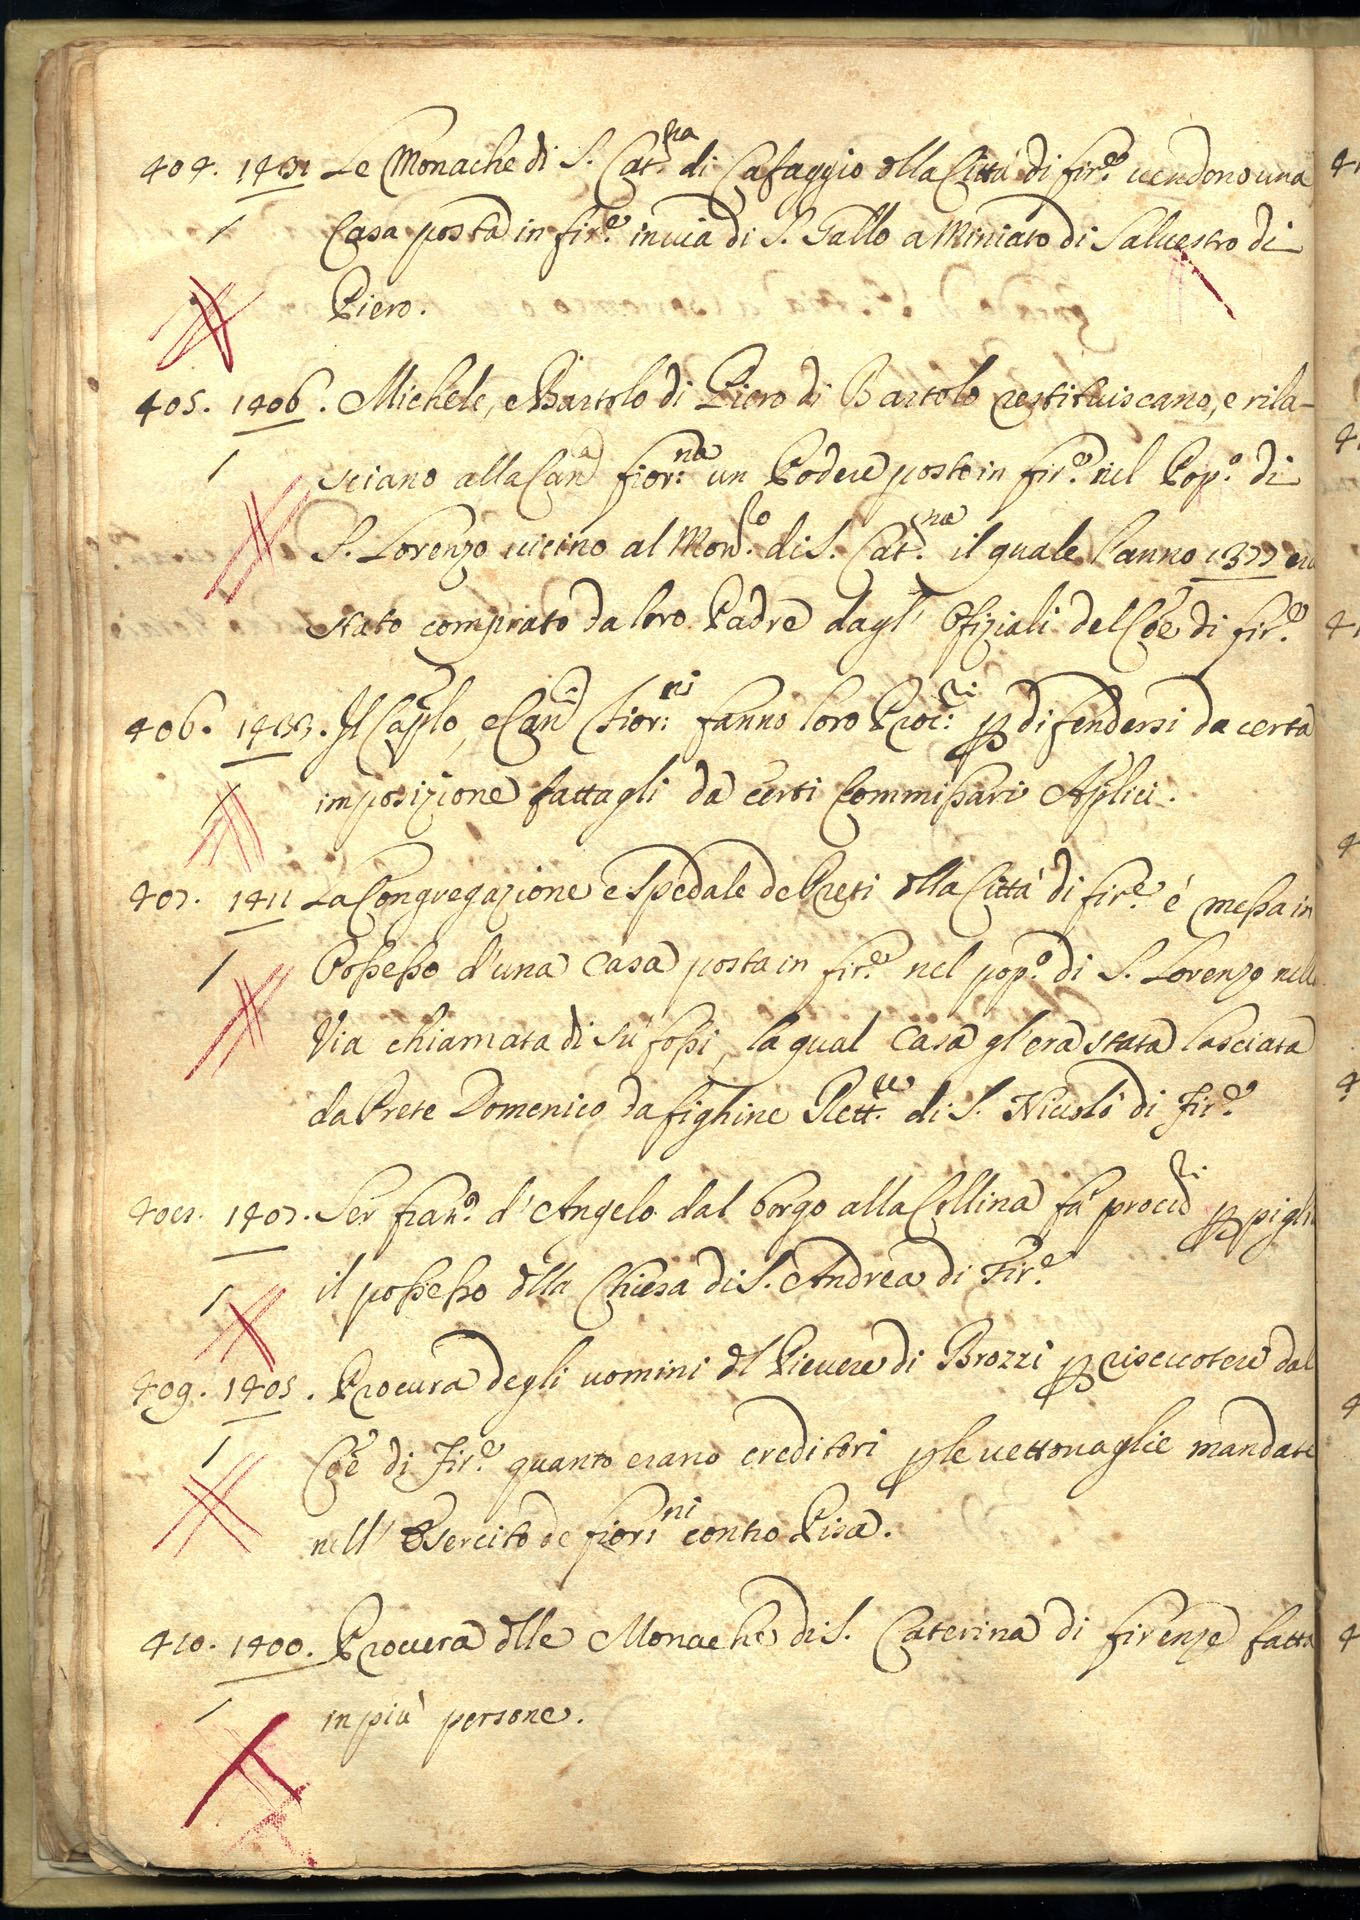 404. 1431 Le Monache di S. Cat.na di Cafaggio dlla Città di Fir.e vendono una
/ Casa posta in Fir.e in via di S. Gallo a Miniato di Salvestro di
Piero.
405. 1406. Michele, e Bartolo di Piero di Bartolo restituiscano, e rila-
/ sciano alla Can.a Fior.na un Podere posto in Fir.e nel Pop.o di
S. Lorenzo vicino al Mon.ro di S. Cat.na il quale l'anno 1377 era
stato comprato da loro Padre dagl' Ofiziali del Coe di Fir.e
406. 1433. Il Caplo, e Can.ci Fior.ni fanno loro Proc.ri p difendersi da certa
/ imposizione fattagli da certi Commissari Aplici.
407. 1411 La Congregazione e Spedale de Preti dlla Città di Fir.e é messa in
/ Possesso d'una Casa posta in Fir.e nel pop.o di S. Lorenzo nella
Via chiamata di sù fossi, la qual Casa gl'era stata lasciata
da Prete Domenico da Fighine Rett.re di S. Niccolò di Fir.e
408. 1407. Ser Fran.o d'Angelo dal borgo alla Collina fà proc.ri p pigli
/ il possesso dlla Chiesa di S. Andrea di Fir.e
409. 1405. Procura degli uomini dl Pievere di Brozzi p riscuotere dal
/ Coe di Fir.e quanto erano creditori p le vettovaglie mandate
nell' Esercito de Fior.ni contro Pisa.
410. 1400. Procura dlle Monache di S. Caterina di Firenze fatta
/ in più persone.